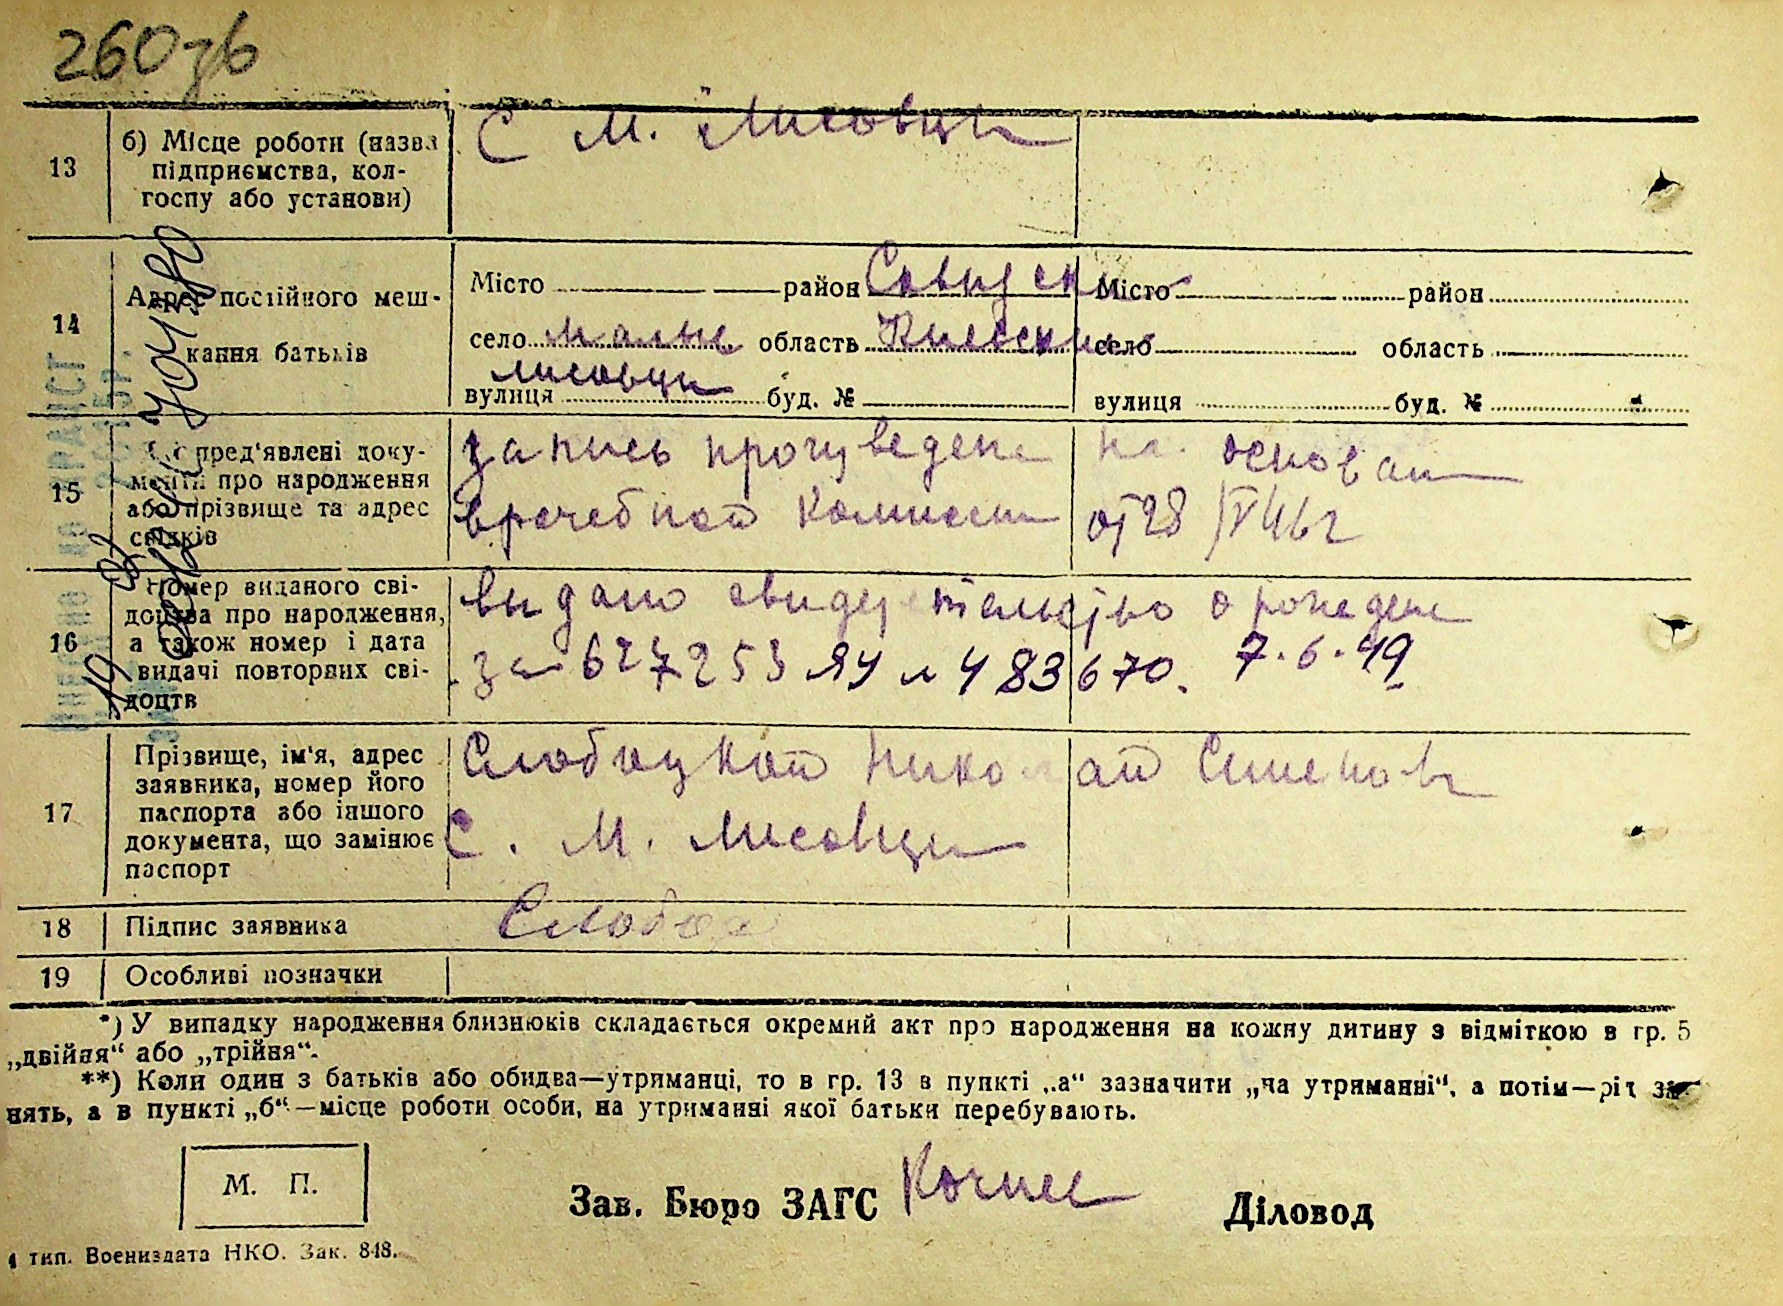 260зв
13
б) Місце роботи (назва
підприємства, кол-
госпу або установи)
С М. Лисовцы
14
Адрес постійного меш-
кання батьків
Місто район
село Малые область Киевская
Лисовцы
вулиця буд. №
Місто район
село область
вулиця буд. №
15
пред'явлені доку-
менти про народження
або прізвище та адрес
свідків
запись произведена на основан
врачебной комиссии от 28/IV 46 г
16
Номер виданого сві-
доцтва про народження,
а також номер і дата
видачі повторних сві-
доцтв
выдано свидетельство о рожден
за 627253 ЯУ № 483670. 7.6.49
17
Прізвище, ім'я, адрес
заявника, номер його
паспорта або іншого
документа, що замінює
паспорт
Слободской Николай Семенов
С. М. Лисовцы
18
Підпис заявника
19
Особливі позначки
*) У випадку народження близнюків складається окремий акт про народження на кожну дитину з відміткою в гр. 5
„двійня“ або „трійня“.
**) Коли один з батьків або обидва—утриманці, то в гр. 13 в пункті „а“ зазначити „на утриманні“, а потім—рід за-
нять, а в пункті „б“—місце роботи особи, на утриманні якої батьки перебувають.
М. П.
Зав. Бюро ЗАГС
Діловод
1 тип. Воениздата НКО. Зак. 848.